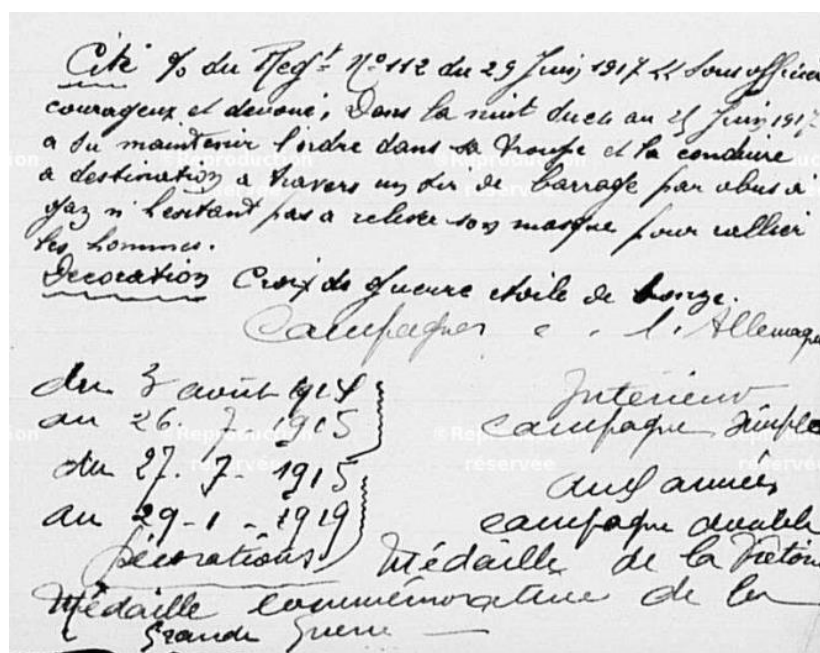 Cité % du Regt No 112 du 29 Juin 1917 << Sous officier
courageux et dévoué, Dans la nuit du au 25 Juin 1917
a su maintenir l'ordre dans sa troupe et la conduire
a destination a travers un tir de barrage par obus à
gaz n'hesitant pas a relever son masque pour rallier
les hommes.
Decoration Croix de guerre etoile de bronze.
Campagnes c. l'Allemagne
du 3 août 1914 Interieur
au 26. 7. 1915 campagne Simple
du 27. 7. 1915 aux armées
au 29-1-1919 campagne double
Décorations. Médaille de la Victoire
Médaille commémorative de la
Grande Guerre —
©Reproduction
réservée